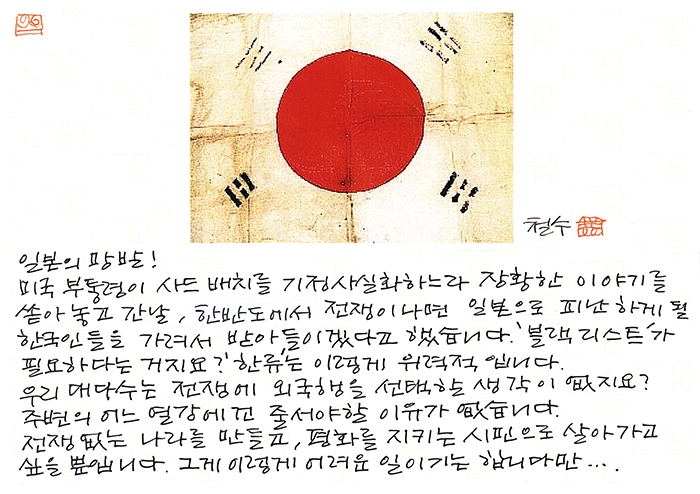 철수
일본의 망발!
미국 부통령이 사드 배치를 기정사실화하느라 장황한 이야기를
쏟아 놓고 간 날, 한반도에서 전쟁이 나면 일본으로 피난하게 될
한국인들을 가려서 받아들이겠다고 했습니다. '블랙리스트'가
필요하다는 거지요? '한류'는 이렇게 위력적입니다.
우리 대다수는 전쟁에 외국행을 선택할 생각이 없지요?
주변의 어느 열강에건 줄서야할 이유가 없습니다.
전쟁없는 나라를 만들고, 평화를 지키는 시민으로 살아가고
싶을 뿐입니다. 그게 이렇게 어려운 일이기는 합니다만....